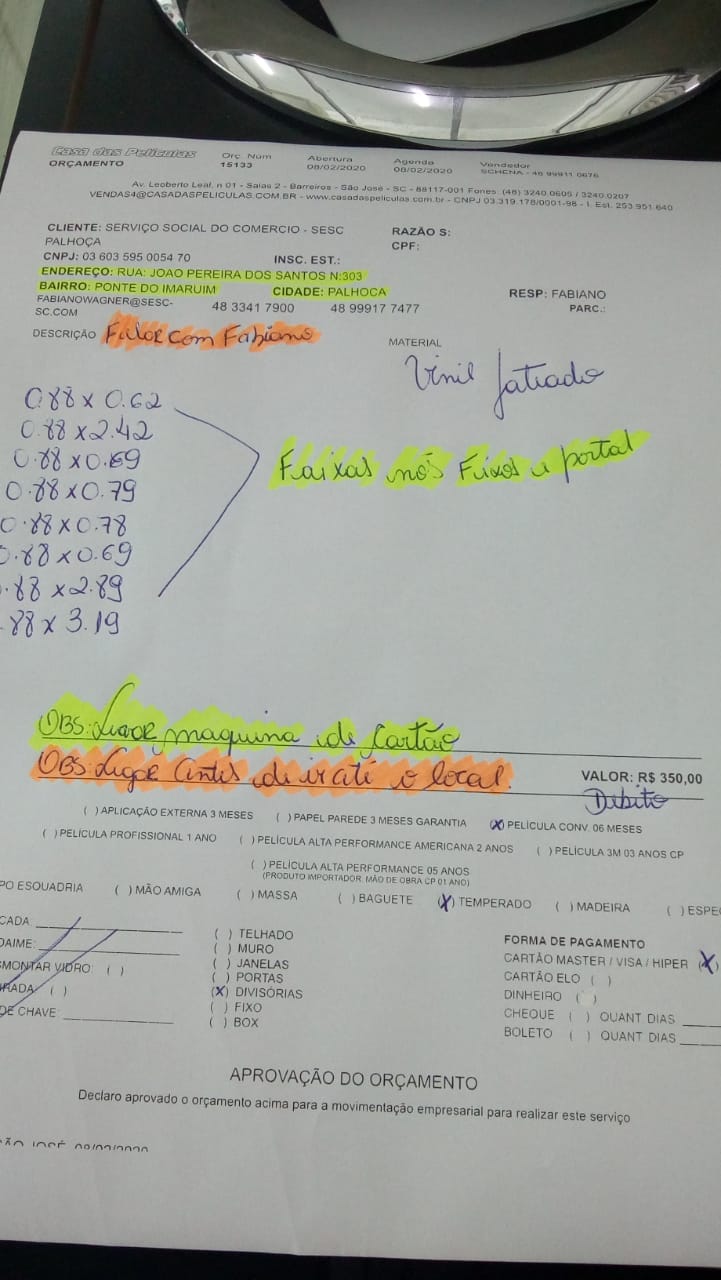 Casa das Películas
ORÇAMENTO
Orç Num
15133
Abertura
08/02/2020
Agenda
08/02/2020
Vendedor
SCHENA - 48 99911 0676
Av. Leoberto Leal, n 01 - Salas 2 - Barreiros - São José - SC - 88117-001 Fones: (48) 3240.0605 / 3240.0207
VENDAS4@CASADASPELICULAS.COM.BR - www.casadaspeliculas.com.br - CNPJ 03.319.178/0001-98 - I. Est. 253.951.640
CLIENTE: SERVIÇO SOCIAL DO COMERCIO - SESC
PALHOÇA
RAZÃO S:
CPF:
CNPJ: 03 603 595 0054 70 INSC. EST.:
ENDEREÇO: RUA: JOAO PEREIRA DOS SANTOS N:303
BAIRRO: PONTE DO IMARUIM CIDADE: PALHOCA
RESP: FABIANO
FABIANOWAGNER@SESC-
SC.COM
48 3341 7900 48 99917 7477
PARC.:
DESCRIÇÃO Falar com Fabiano
MATERIAL
Vinil Jatiado
0.88 x 0.62
0.88 x 2.42
0.88 x 0.69
0.88 x 0.79
0.88 x 0.78
0.88 x 0.69
.88 x 2.89
.88 x 3.19
Faixas nos Fixos e portal
OBS: Levar maquina de Cartão
OBS: Ligar Antes de ir até o local.
VALOR: R$ 350,00
Debito
( ) APLICAÇÃO EXTERNA 3 MESES ( ) PAPEL PAREDE 3 MESES GARANTIA (X) PELÍCULA CONV. 06 MESES
( ) PELÍCULA PROFISSIONAL 1 ANO ( ) PELÍCULA ALTA PERFORMANCE AMERICANA 2 ANOS ( ) PELÍCULA 3M 03 ANOS CP
( ) PELÍCULA ALTA PERFORMANCE 05 ANOS
(PRODUTO IMPORTADOR. MÃO DE OBRA CP 01 ANO)
PO ESQUADRIA ( ) MÃO AMIGA ( ) MASSA ( ) BAGUETE (X) TEMPERADO ( ) MADEIRA ( ) ESPE
CADA
DAIME:
SMONTAR VIDRO: ( )
IRADA: ( )
DE CHAVE:
( ) TELHADO
( ) MURO
( ) JANELAS
( ) PORTAS
(X) DIVISÓRIAS
( ) FIXO
( ) BOX
FORMA DE PAGAMENTO
CARTÃO MASTER / VISA / HIPER (X)
CARTÃO ELO ( )
DINHEIRO ( )
CHEQUE ( ) QUANT DIAS
BOLETO ( ) QUANT DIAS
APROVAÇÃO DO ORÇAMENTO
Declaro aprovado o orçamento acima para a movimentação empresarial para realizar este serviço
ÃO JOSÉ, 08/02/2020